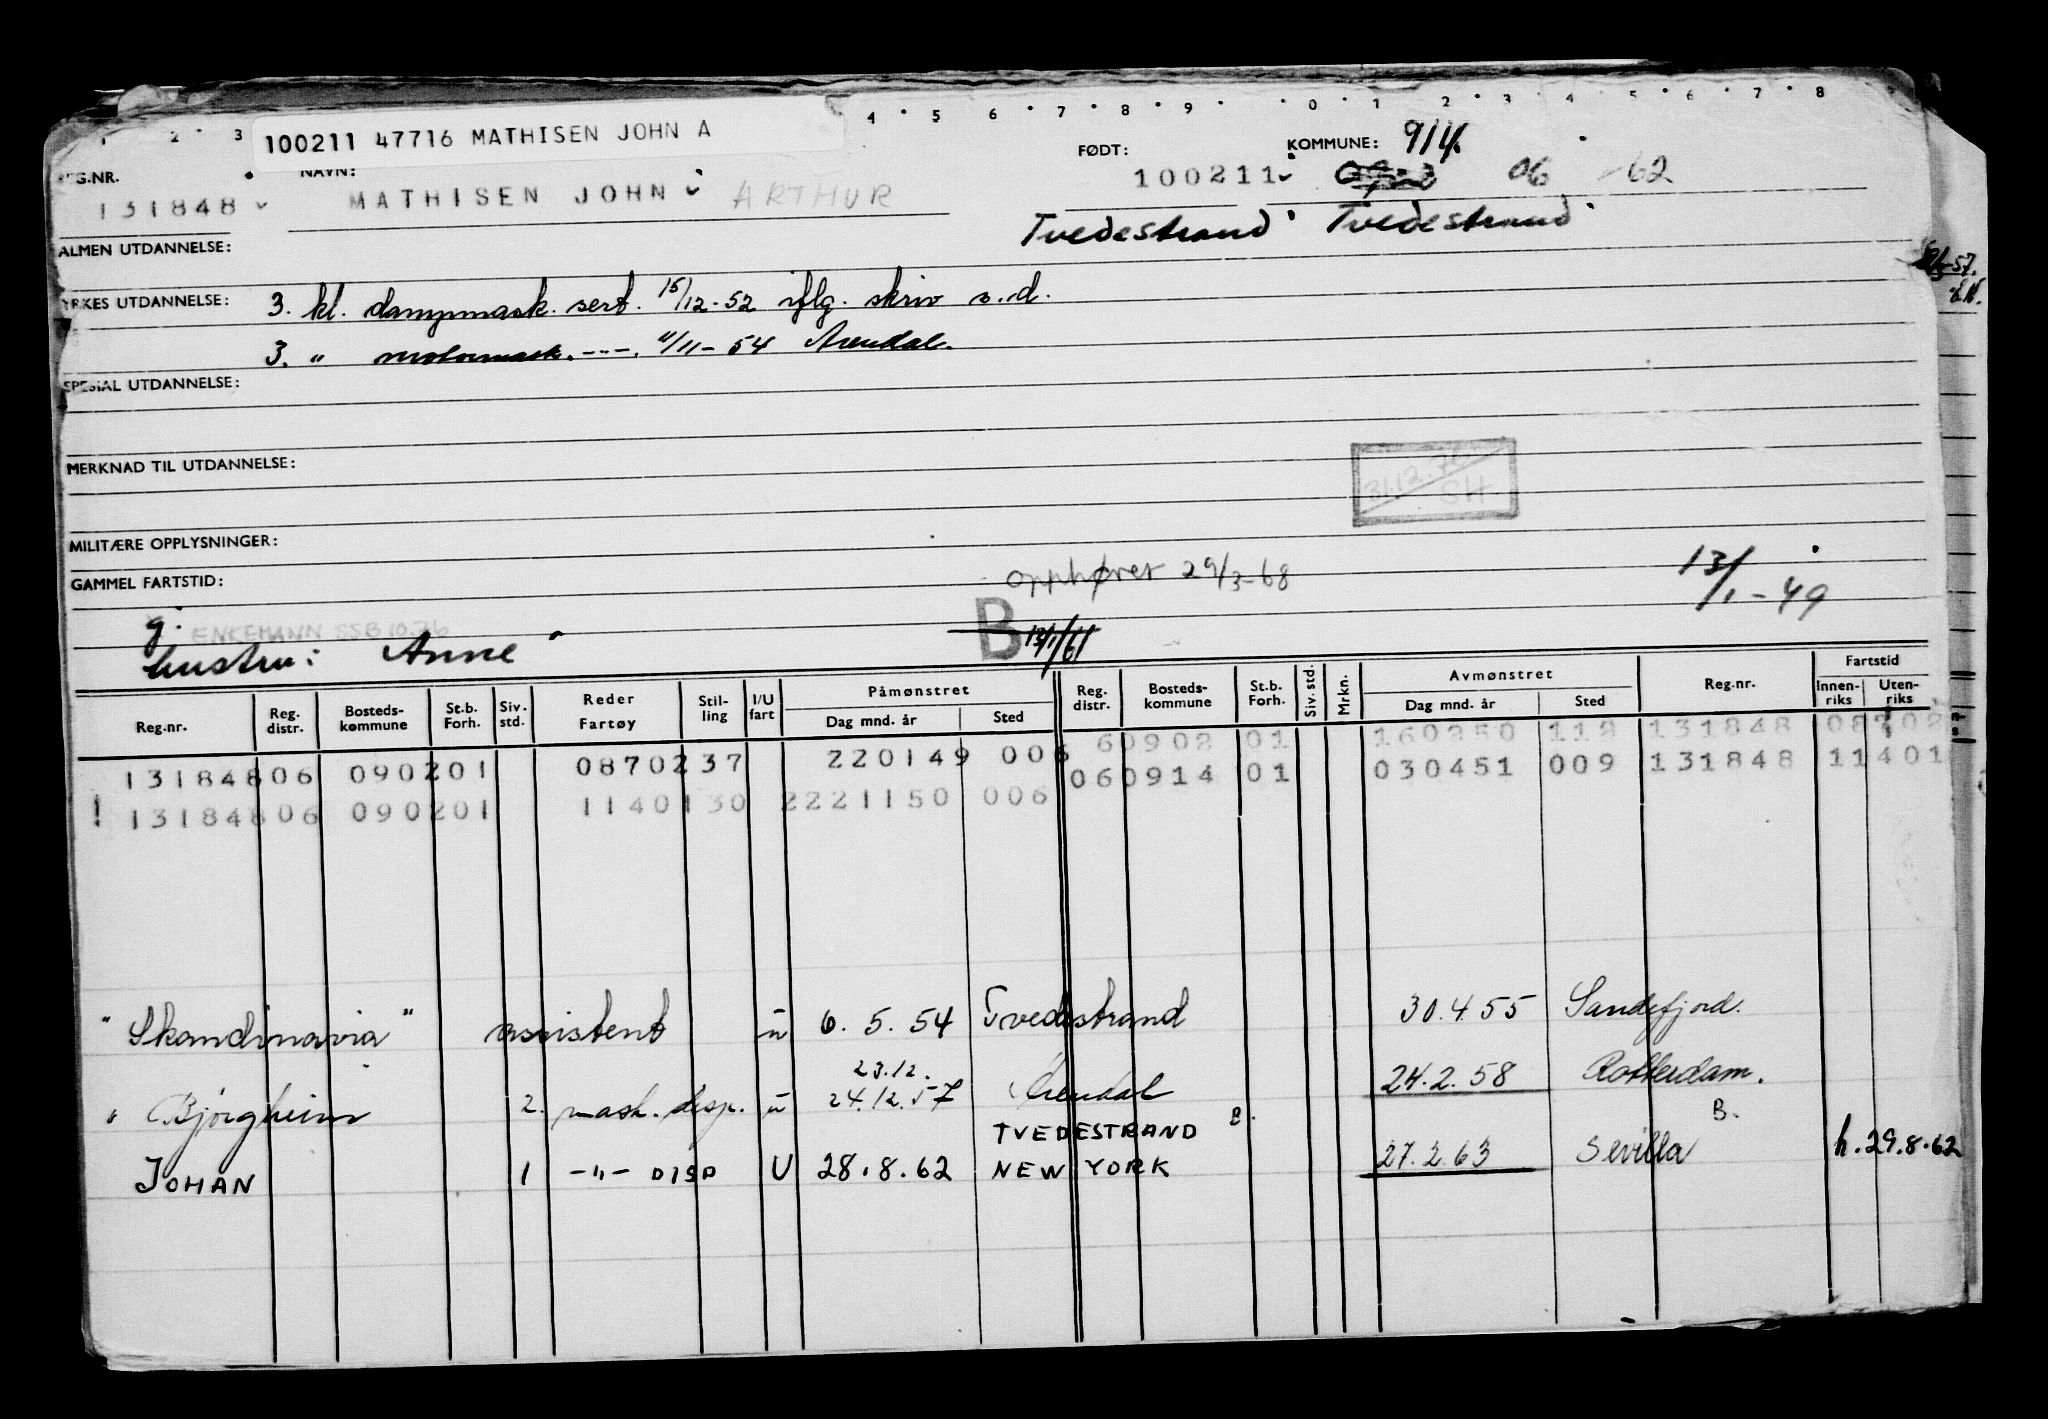 4 · 5 6 · 7 · 8 · 9 · 0 · 1 2 · 3 4 · 5 · 6 · 7 · 8
2 · 3
100211 47716 MATHISEN JOHN A
FØDT: KOMMUNE: 914.
REG.NR. NAVN:
131848 MATHISEN JOHN ARTHUR 100211 06 62
Tvedestrand Tvedestrand
ALMEN UTDANNELSE:
YRKES UTDANNELSE: 3. kl. dampmask. sert. 15/12-52 iflg. skriv s.d.
3. " motormask. -"- 11/11-54 Arendal.
SPESIAL UTDANNELSE:
MERKNAD TIL UTDANNELSE:
31.12.76 SH
MILITÆRE OPPLYSNINGER:
GAMMEL FARTSTID: opphører 29/3-68 13/1-49
g. ENKEMANN SSB 10.76
hustru: Anne B 13/1/61
Reg.nr. Reg. distr. Bosteds-kommune St.b. Forh. Siv. std. Reder Fartøy Stil-ling I/U fart Påmønstret Dag mnd. år Sted Reg. distr. Bosteds-kommune St.b. Forh. Siv. std. Mrkn. Avmønstret Dag mnd. år Sted Reg.nr. Fartstid Innen-riks Uten-riks
60902 01 160250 118 131848 08702
13184806 090201 0870237 220149 006 060914 01 030451 009 131848 11401
! 13184806 090201 1140130 2221150 006
"Skandinavia" assistent u 6.5.54 Tvedestrand 30.4.55 Sandefjord.
23.12.
" Bjørgheim 2. mask. disp. u 24.12.57 Arendal 24.2.58 Rotterdam.
TVEDESTRAND B. B.
JOHAN 1 -"- DISP U 28.8.62 NEW YORK 27.2.63 Sevilla h.29.8.62